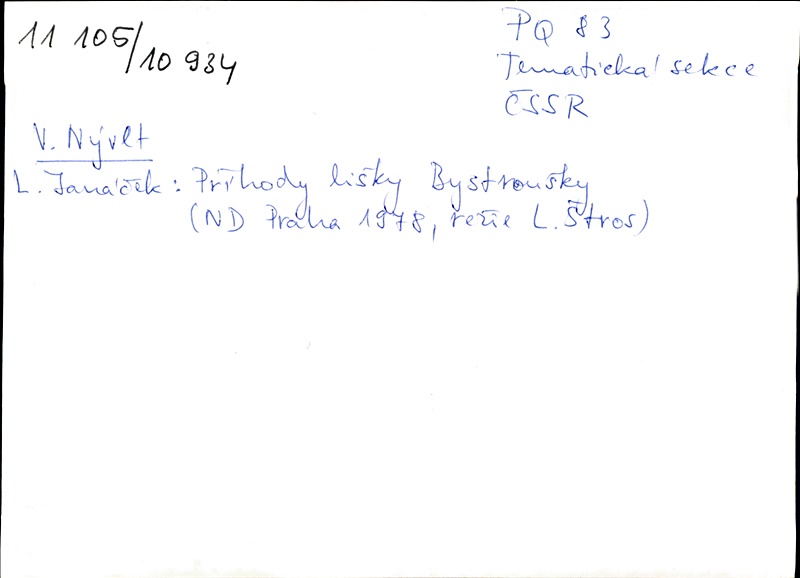 11 105/10 934
PQ 83
Tematická sekce
ČSSR
V. Nývlt
L. Janáček: Příhody lišky Bystroušky
(ND Praha 1978, režie L. Štros)